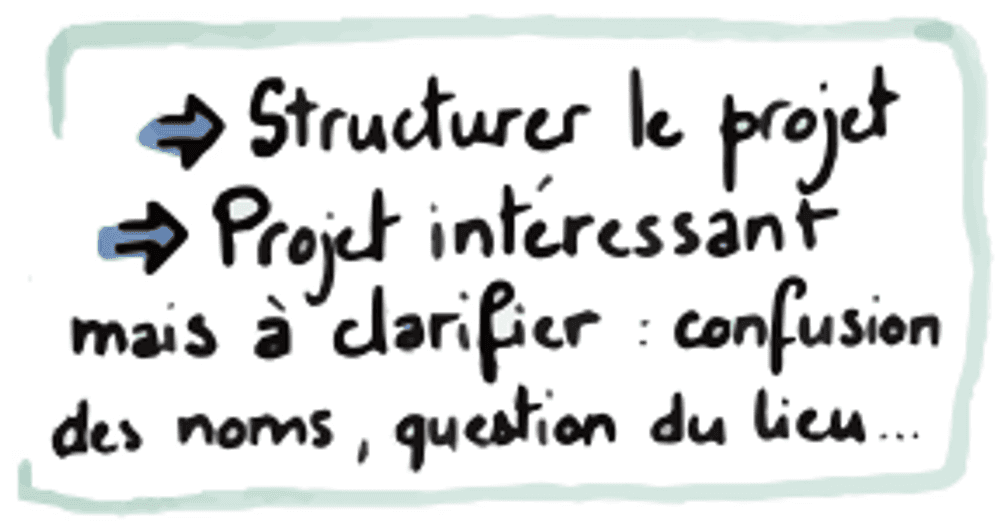 ⇒ Structurer le projet
⇒ Projet intéressant
mais à clarifier : confusion
des noms, question du lieu...